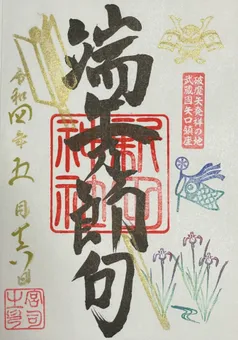 破魔矢発祥の地
武蔵國矢口鎮座
端午節句
新田
神社
令和四年五月日
宮司